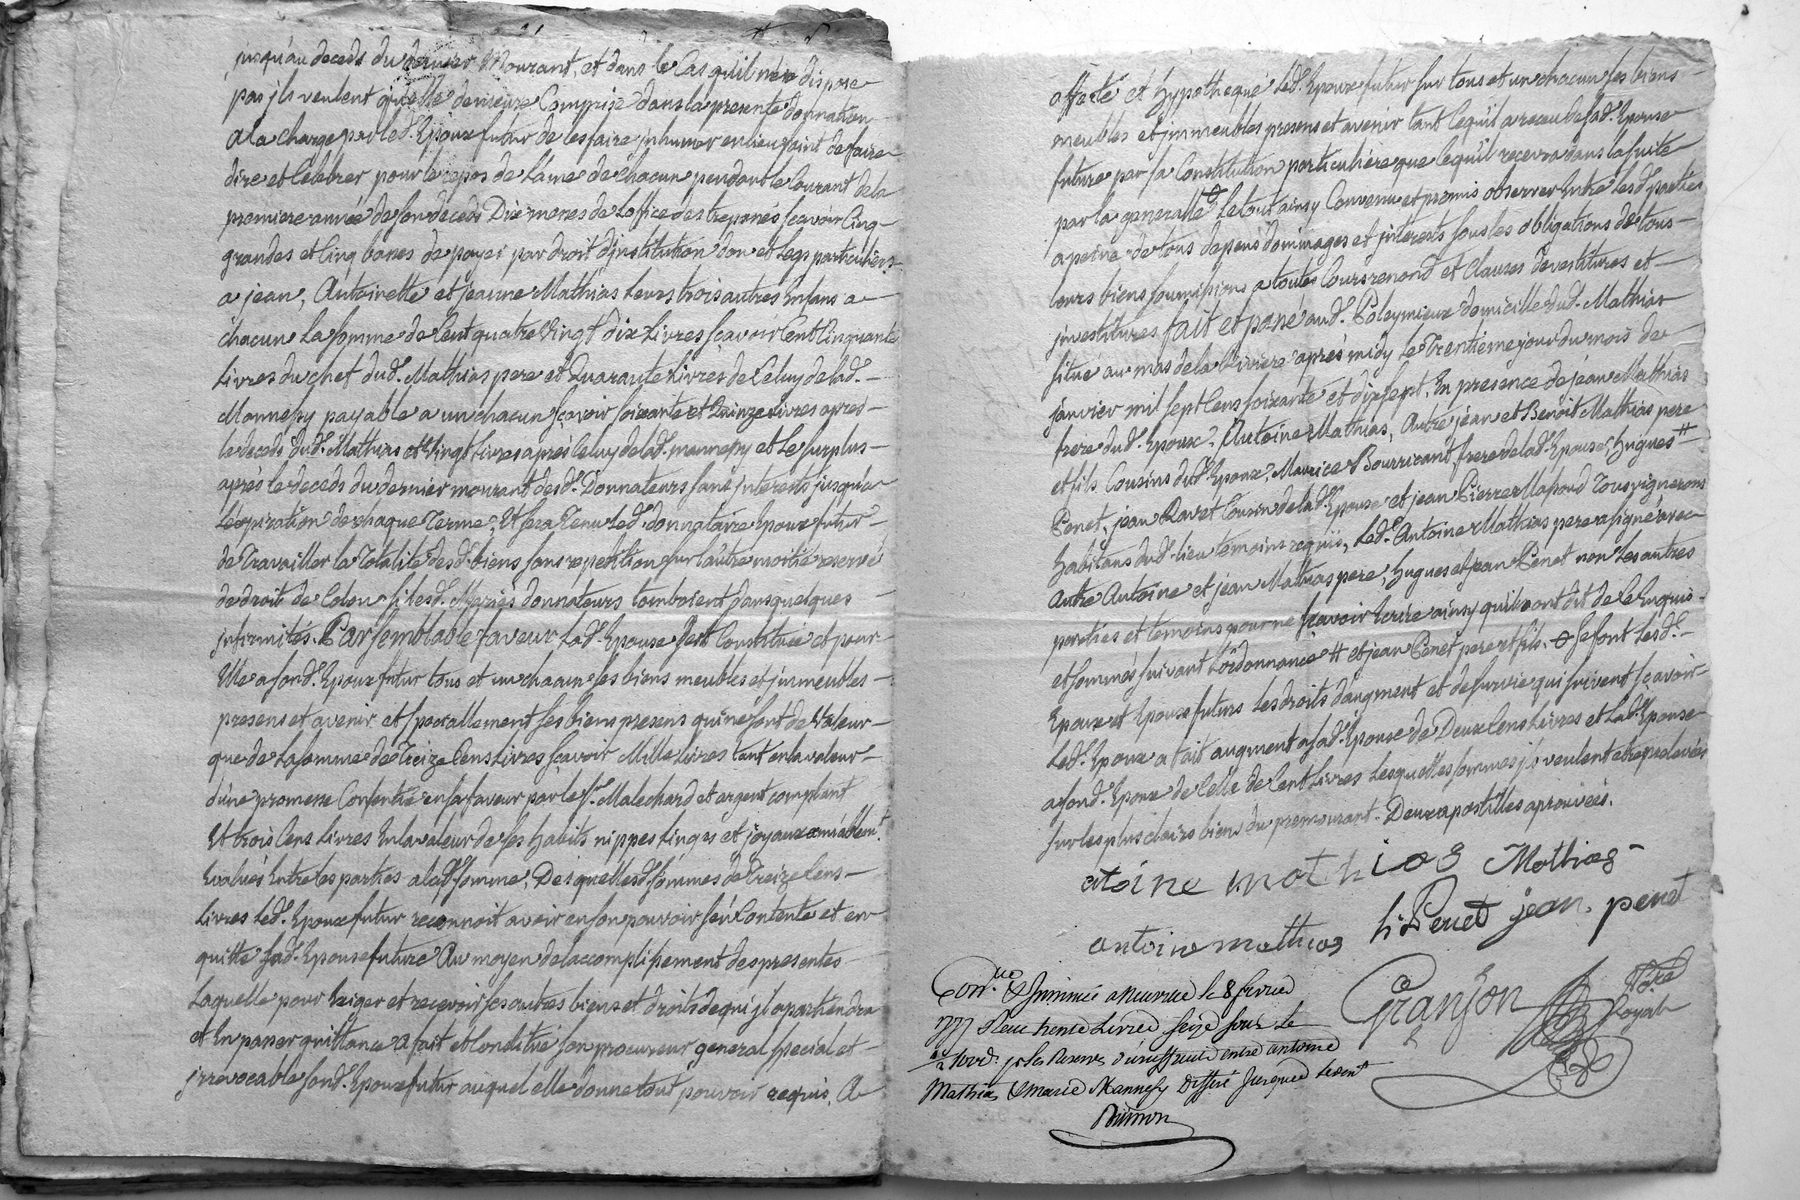 jusqu'au decedz du dernier Mourant, et dans le Cas qu'il n'en dispose
pas jls veulent qu'elle demeure Comprise dans la presente donnation
a la charge par led. Epoux futur de les faire jnhumer en lieu saint de faire
dire et Celebrer pour le repos de L'ame de chacun pendant le Courant de la
premiere année de son decedz Dix messes de L'office des trepassés scavoir Cinq
grandes et Cinq basses de payer par droit d'jnstitution don et Legs particuliers
a jean, Antoinette et jeanne Mathias Leurs trois autres Enfans a
chacun La somme de Cent quatre vingt Dix Livres scavoir Cent Cinquante
Livres du chef dud. Mathias pere et Quarante Livres de Celuy de lad.
Mannessy payable a un chacun scavoir soixante et Quinze Livres apres
le decedz dud. Mathias et Vingt Livres après Celuy de lad. mannessy et Le surplus
après le decedz du dernier mourant desd. Donnateurs sans jnterests jusqu'a
L'expiration de chaque Terme, Et sera Tenu Led. donnataire Epoux futur
de Travailler la Totalité desd. biens sans repetition sur L'autre moitié reservée
de droit de Colon si lesd. Mariés donnateurs tomboient dans quelques
jnfirmités. Par semblable faveur Lad. Epouse s'est Constituée et pour
Elle a sond. Epoux futur tous et un chacun ses biens meubles et jmmeubles
presens et avenir et specialement ses biens presens qui ne sont de Valeur
que de La somme de Treize Cens Livres scavoir Mille Livres tant en la valeur
d'une promesse Consentie en sa faveur par le Sr. Malechard et argent comptant
Et trois Cens Livres En la valeur de ses habits nippes linges et joyaux amiablemt.
Evalués Entre les parties a lad. somme, Desquelles d. sommes de Treize Cens
Livres Led. Epoux futur reconnoit avoir en son pouvoir s'en Contente et en
quitte sad. Epouse future Au moyen de l'accomplissement des presentes
Laquelle pour Exiger et recevoir ses autres biens et droits de qui jl apartiendra
et En passer quittance a fait et Constitué son procureur general special et
jrrevocable sond. Epoux futur auquel elle donne tout pouvoir requis, A
affecté et hypothequé Led. Epoux futur sur tous et un chacun ses biens
meubles et jmmeubles presens et avenir tant Ce qu'il a receu de sad. Epouse
future par sa Constitution particuliere que Ce qu'il recevra dans la suite
par la generalle. Le tout ainsy Convenu et promis observer Entre lesd. parties
a peine de tous depens dommages et jnterests sous les obligations de tous
leurs biens soumissions a toutes Cours renond. et Clauses devestitures et
jnvestitures fait et passé aud. Poleymieux domicille dud. Mathias
situé au mas de la Riviere après midy Le Trentieme jour du mois de
janvier mil sept Cens soixante et dix sept, En presence de jean Mathias
frere dud. Epoux, Antoine Mathias, Autre jean et Benoit Mathias pere
et fils Cousins dud. Epoux, Maurice Bourricant, frere de lad. Epouse, hugues #
Penet, jean Ravet Cousin de lad. Epouse et jean Pierre Mapoud Tous vignerons
habitans dud. lieu temoins requis, Led. Antoine Mathias pere a signé avec
Autre Antoine et jean Mathias pere, hugues et jean Penet non Les autres
parties et temoins pour ne scavoir Ecrire ainsy qu'ils ont dit de Ce Enquis
et sommés suivant L'ordonnance # et jean Penet pere et fils. se font lesd.
Epoux et Epouse futurs Les droits d'augment et de survie qui suivent scavoir
Led. Epoux a fait augment a sad. Epouse de Deux Cens Livres et Lad. Epouse
a sond. Epoux de Celle de Cent Livres Lesquelles sommes jls veulent etre prelevées
sur les plus clairs biens du premourant. Deux apostilles aprouvées.
atoine mathias Mathias
antoine mathias h. Penet jean penet
Conlé. & Insinué a Neuville le 8 fevrier
1777 Reçu trente Livres seize sous le
Mathias & marie Mannessy Differé jusques
Granjon Nore. Royal